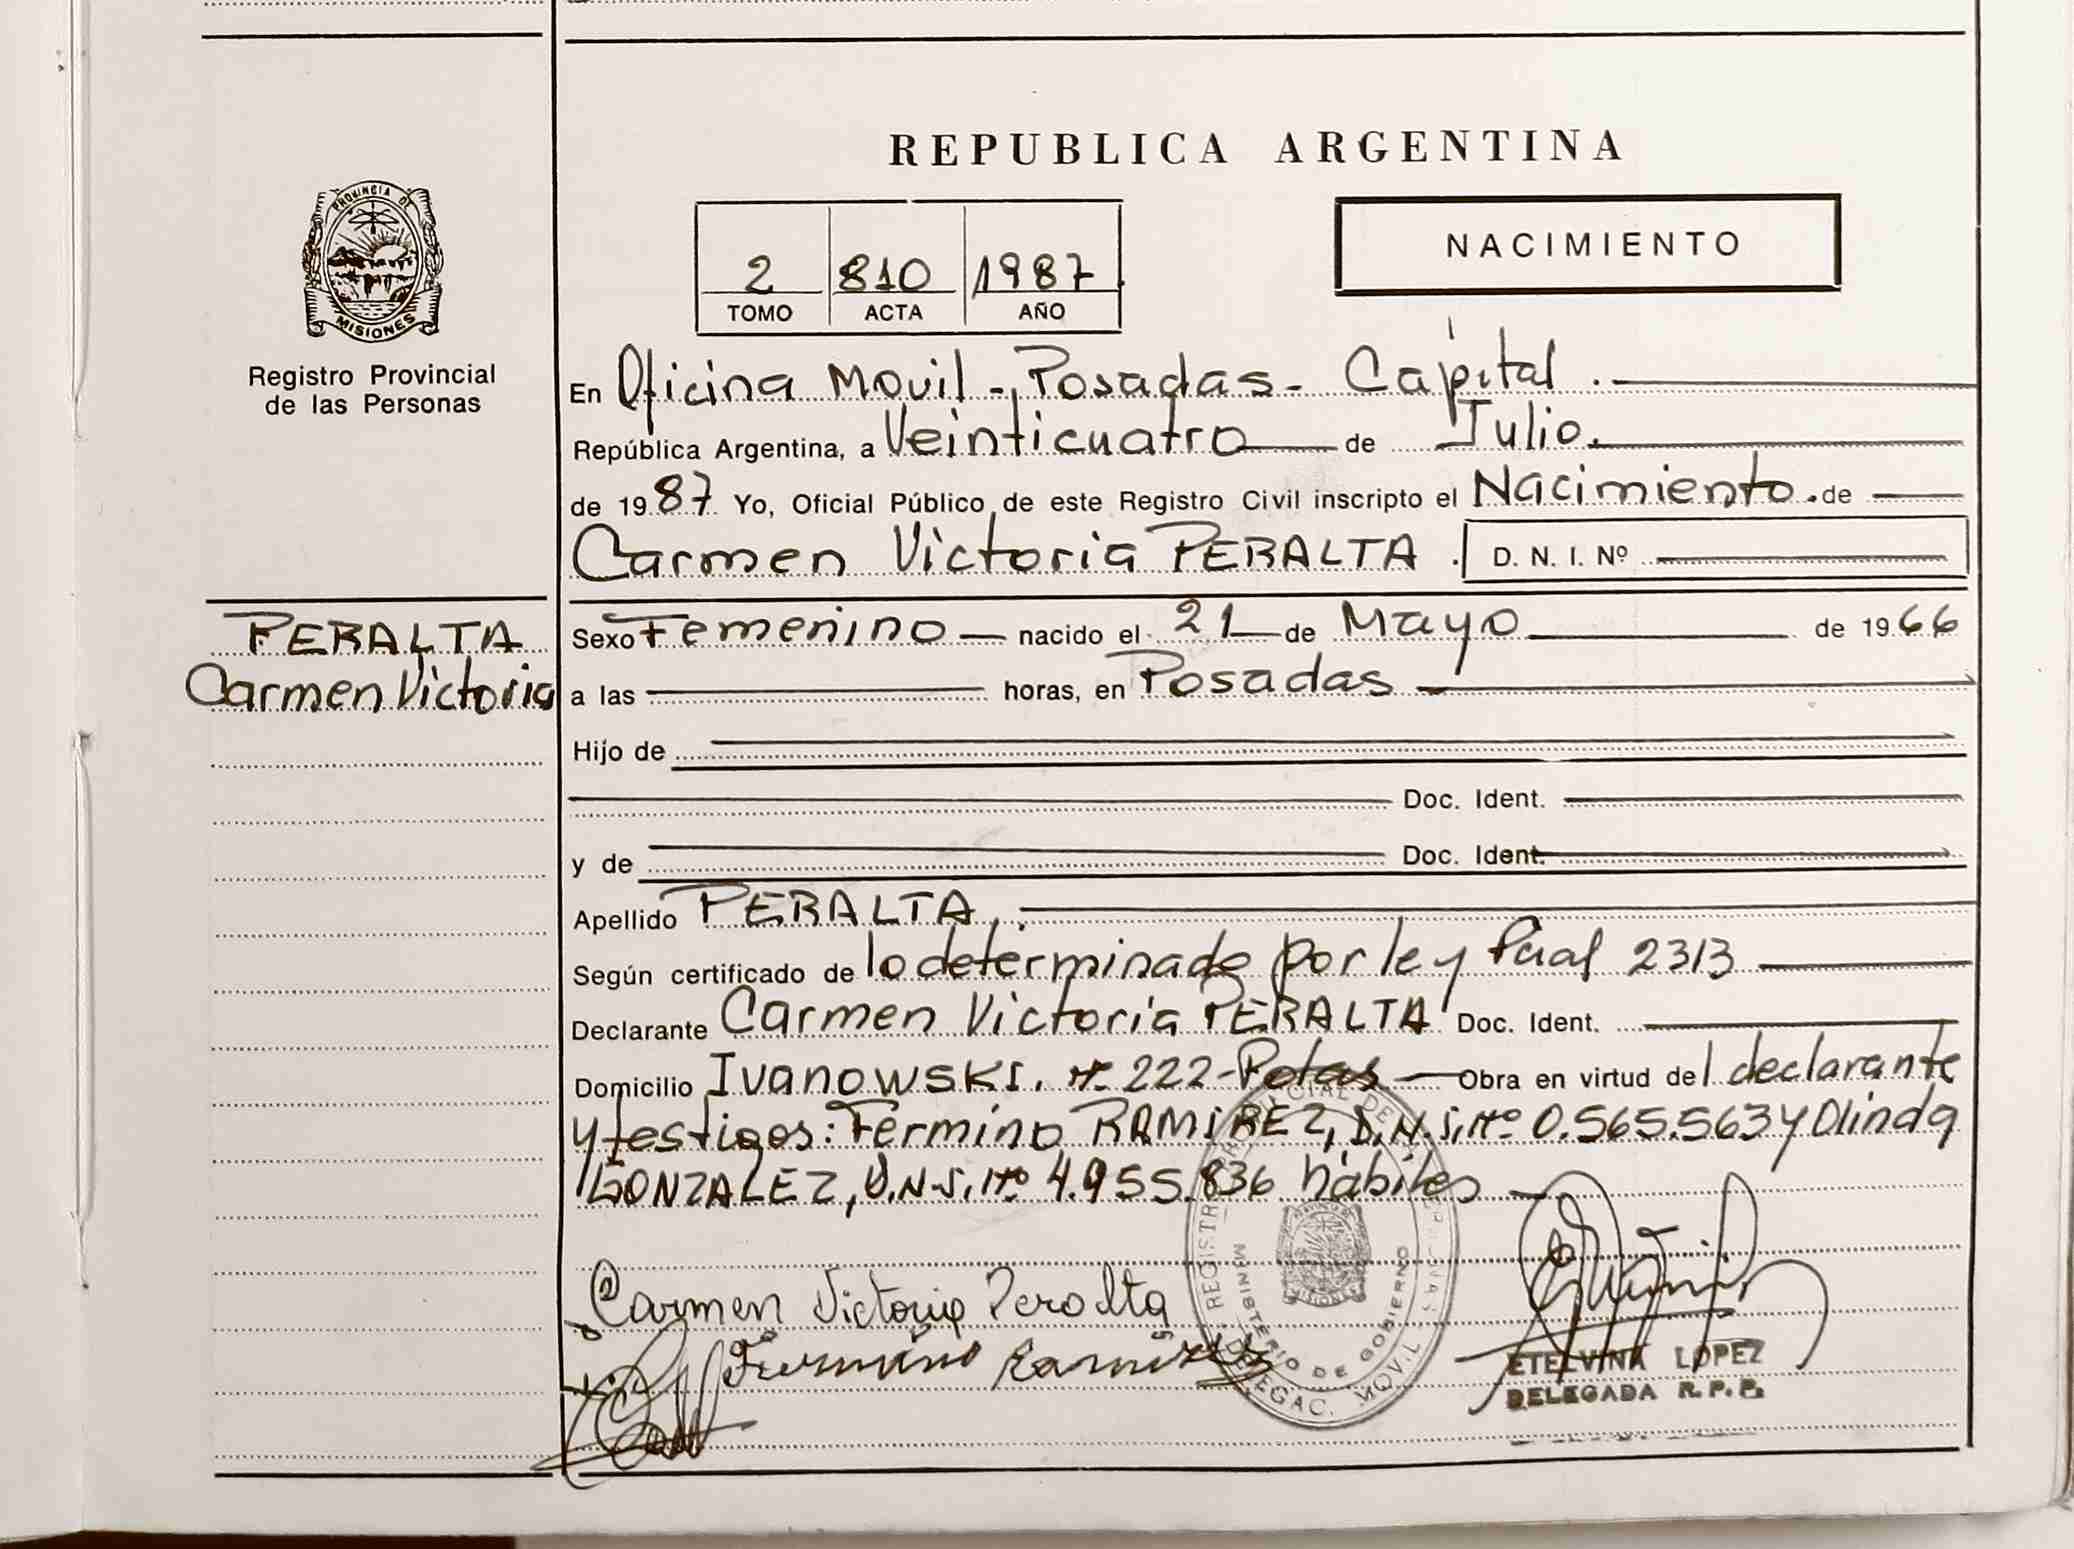 REPUBLICA ARGENTINA
PROVINCIA DE
MISIONES
Registro Provincial
de las Personas
NACIMIENTO
2 810 1987
TOMO ACTA AÑO
En Oficina Movil - Posadas - Capital.
República Argentina, a Veinticuatro de Julio.
de 1987 Yo, Oficial Público de este Registro Civil inscripto el Nacimiento. de
Carmen Victoria PERALTA. D. N. I. Nº
PERALTA
Carmen Victoria
Sexo Femenino nacido el 21 de Mayo de 1966
a las horas, en Posadas
Hijo de
Doc. Ident.
y de Doc. Ident.
Apellido PERALTA.
Según certificado de lo determinado por ley 2313
Declarante Carmen Victoria PERALTA Doc. Ident.
Domicilio Ivanowski. Nº 222- Obra en virtud del declarante
y testigos: Fermino RAMIREZ, D.N.I. Nº 0.565.563 y Olinda
GONZALEZ, D.N.I. Nº 4.955.836 hábiles
Carmen Victoria Peralta
Fermino Ramirez
MINISTERIO DE GOBIERNO
DELEGAC. MOVIL
ETELVINA LOPEZ
DELEGADA R.P.P.